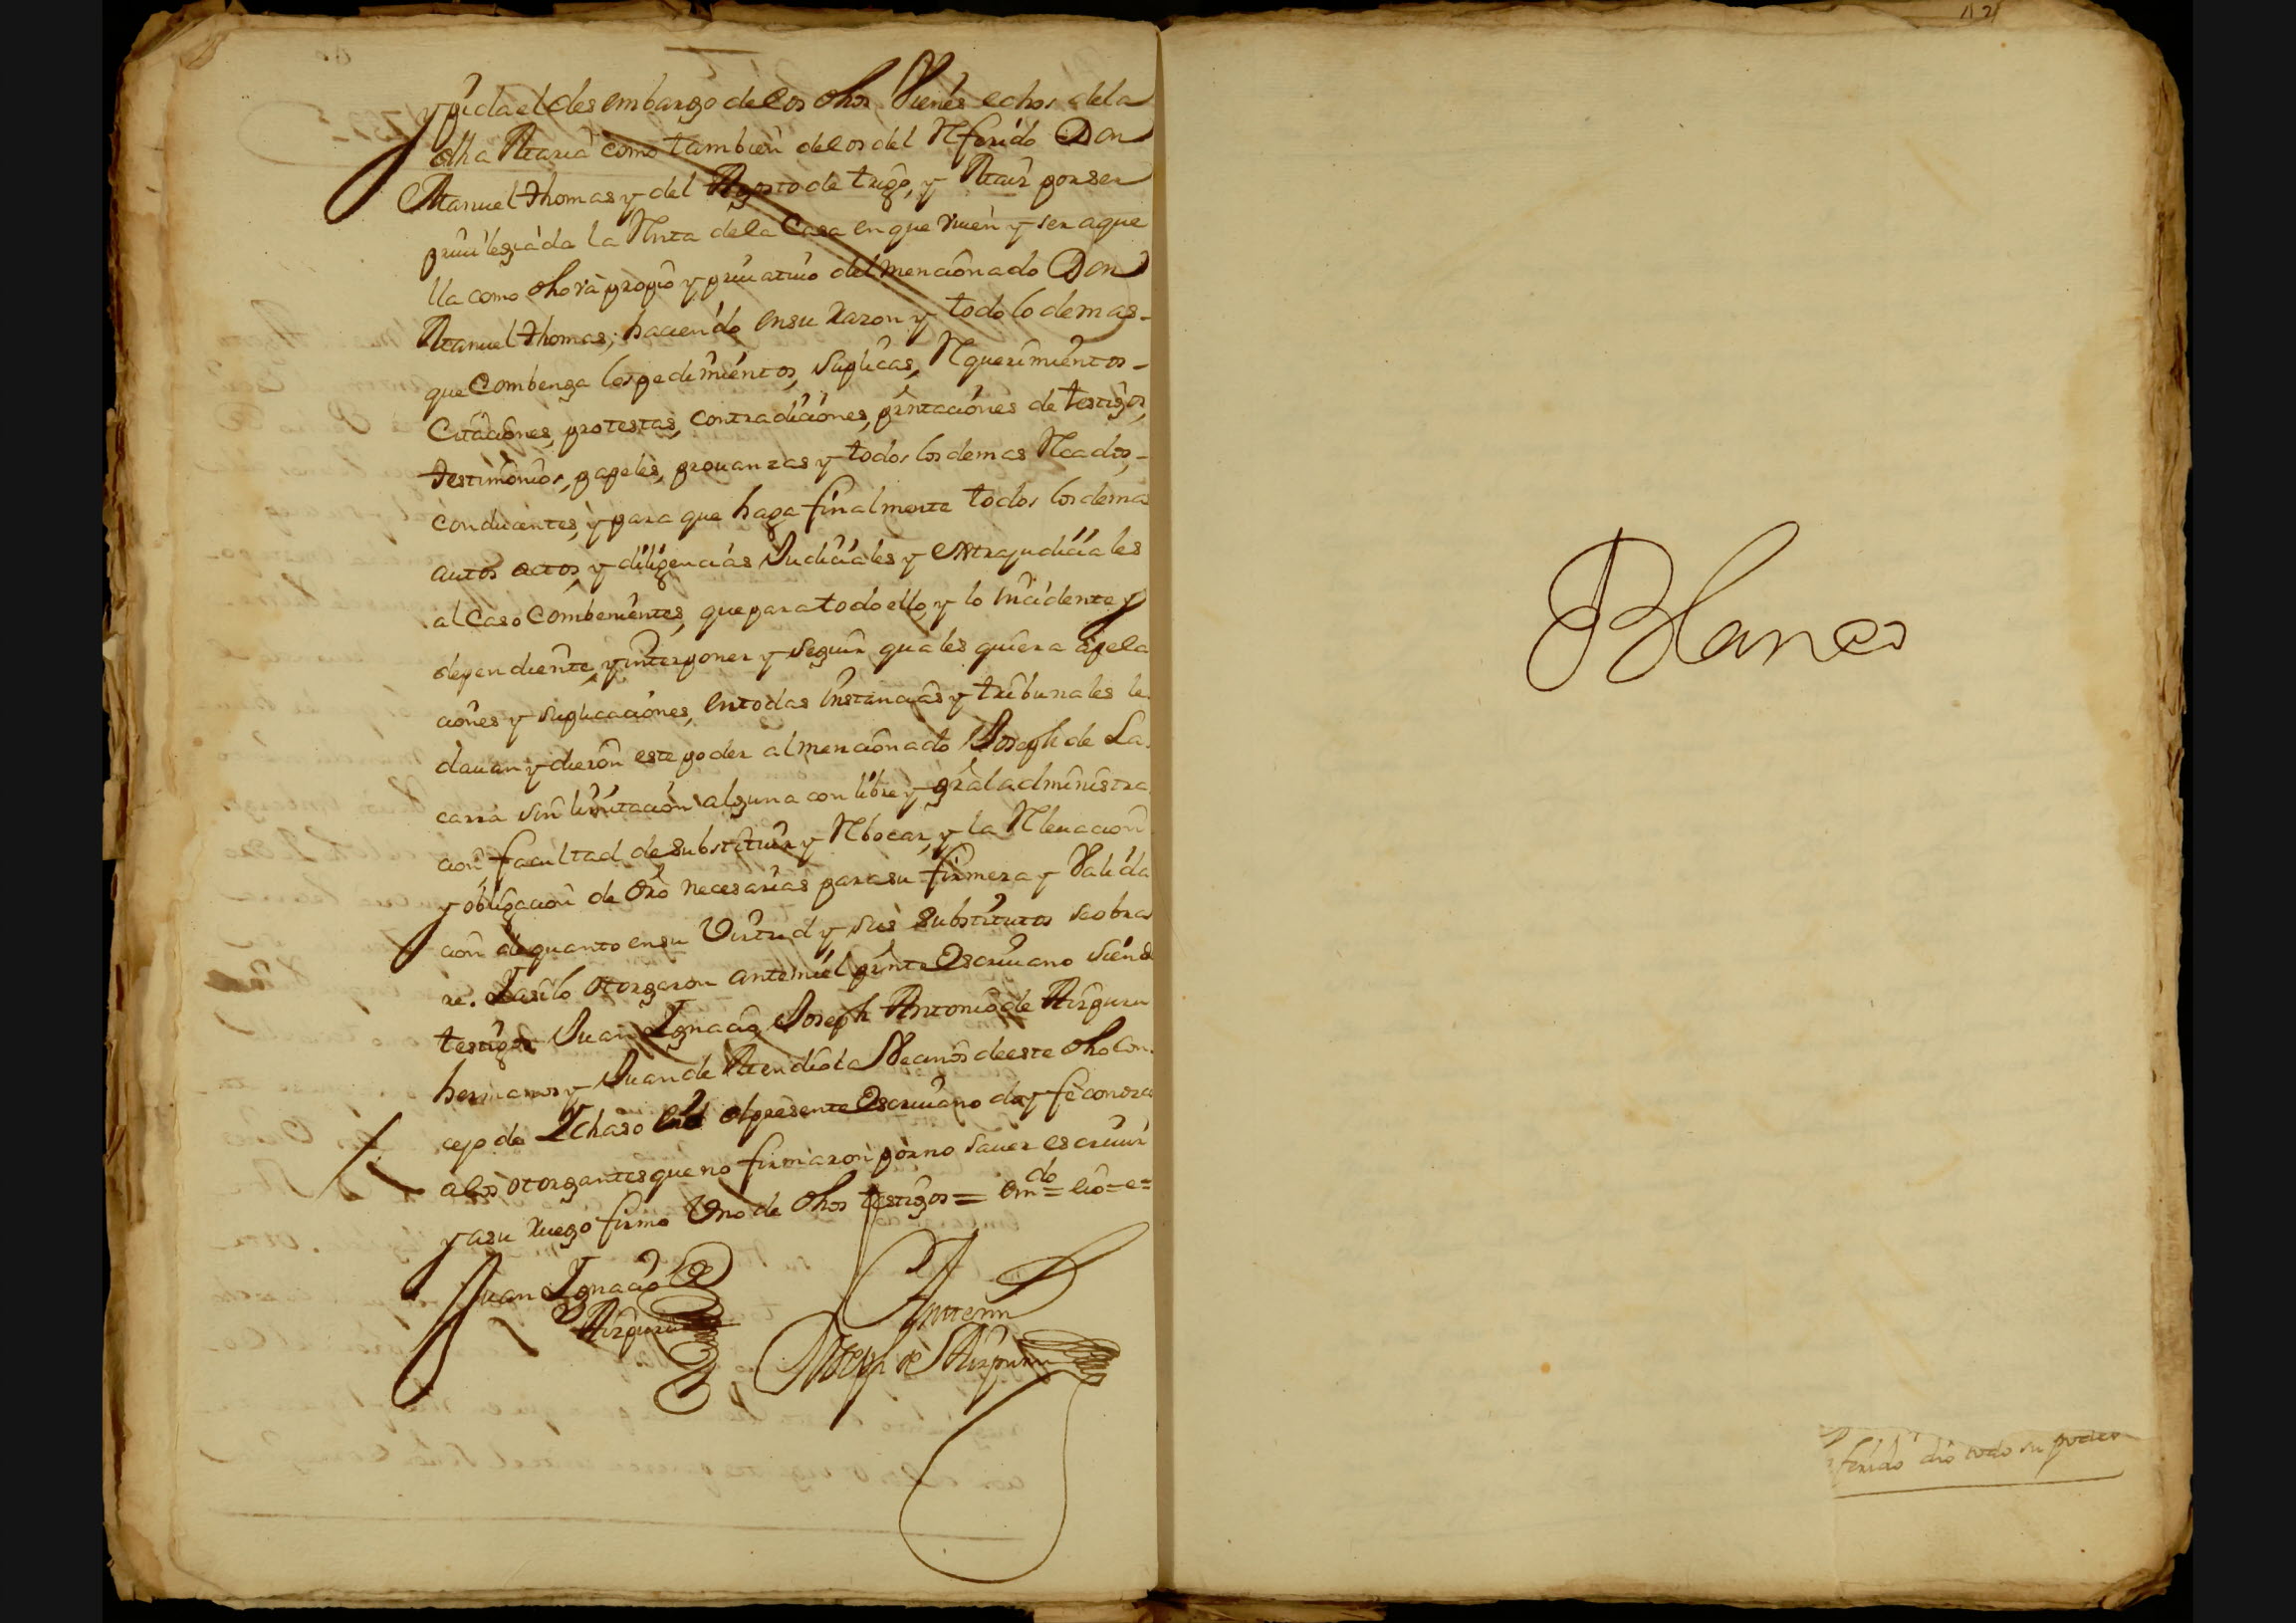 y pida el desembargo de los dhos Vienes echos de la
dha Maria como tambien de los del Referido Don
Manuel Thomas y del Agosto de trigo, y Maiz por ser
priuilegiada la Renta de la Casa en que viuen y ser aque
lla como dho va propio y priuatiuo del mencionado Don
Manuel Thomas; haciendo en su razon y todo lo demas
que Combenga los pedimientos, suplicas, Requerimientos
Citaciones, protestas, contradiciones, presntaciones de testigos,
testimonios, papeles, prouanzas y todos los demas Rcados,
conducentes, y para que haga finalmente todos los demas
autos actos, y diligencias Judiciales y extrajudiciales
al Caso Combenientes, que para todo ello, y lo incidente y
dependiente, y interponer y seguir quales quiera apela
ciones y suplicaciones, en todas instancias y tribunales le
dauan y dieron este poder al mencionado Joseph de La
carra sin limitacion alguna con libre y gral administra
cion, facultad de substituir y Rbocar, y la Rleuacion
y obligacion de dro necesarias para su firmeza y Valida
cion de quanto en su Virtud y sus substitutos se obra
re. Y asi lo otorgaron ante mi el presnte Escriuano siendo
testigos Juan Ignacio, Joseph Antonio de Aizpuru
hermanos y Juan de Mendiola Vecinos de este dho Con
cejo de Ichaso e yo el presente Escriuano doy fe conozco
a los otorgantes que no firmaron por no sauer escriuir
y a su ruego firmo Vno de dhos testigos = em.do = cio = e =
Juan Ignacio de
Aizpuru
Ante mi
Joseph de Aizpuru
Blanco
ferido dio todo su poder